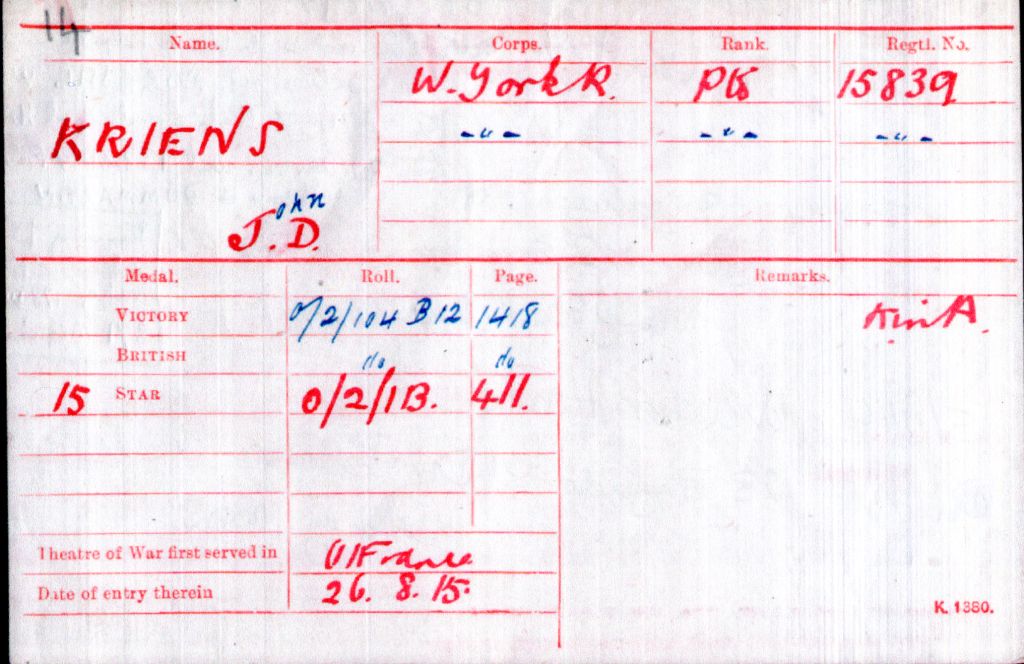 14
Name. Corps. Rank. Regtl. No.
W. York R. Pte 15839
KRIENS -"- -"- -"-
John D.
Medal. Roll. Page. Remarks.
VICTORY O/2/104 B12 1418 KinA.
BRITISH do do
15 STAR O/2/1B. 411.
Theatre of War first served in (1) France
Date of entry therein 26. 8. 15.
K. 1380.